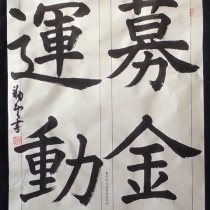 募金
運動